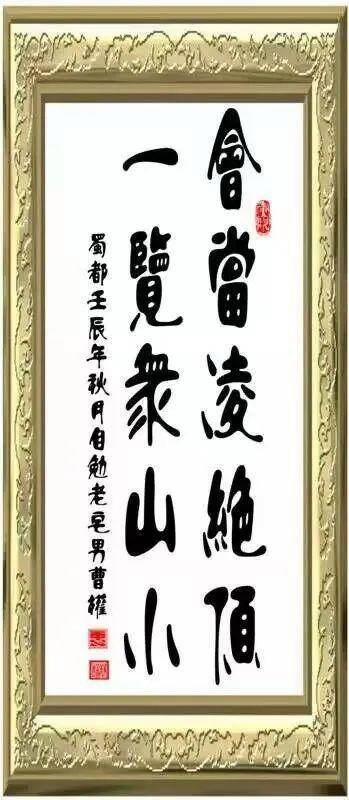 會當凌絕頂
一覽衆山小
蜀都壬辰年秋月自勉老宅男曹權